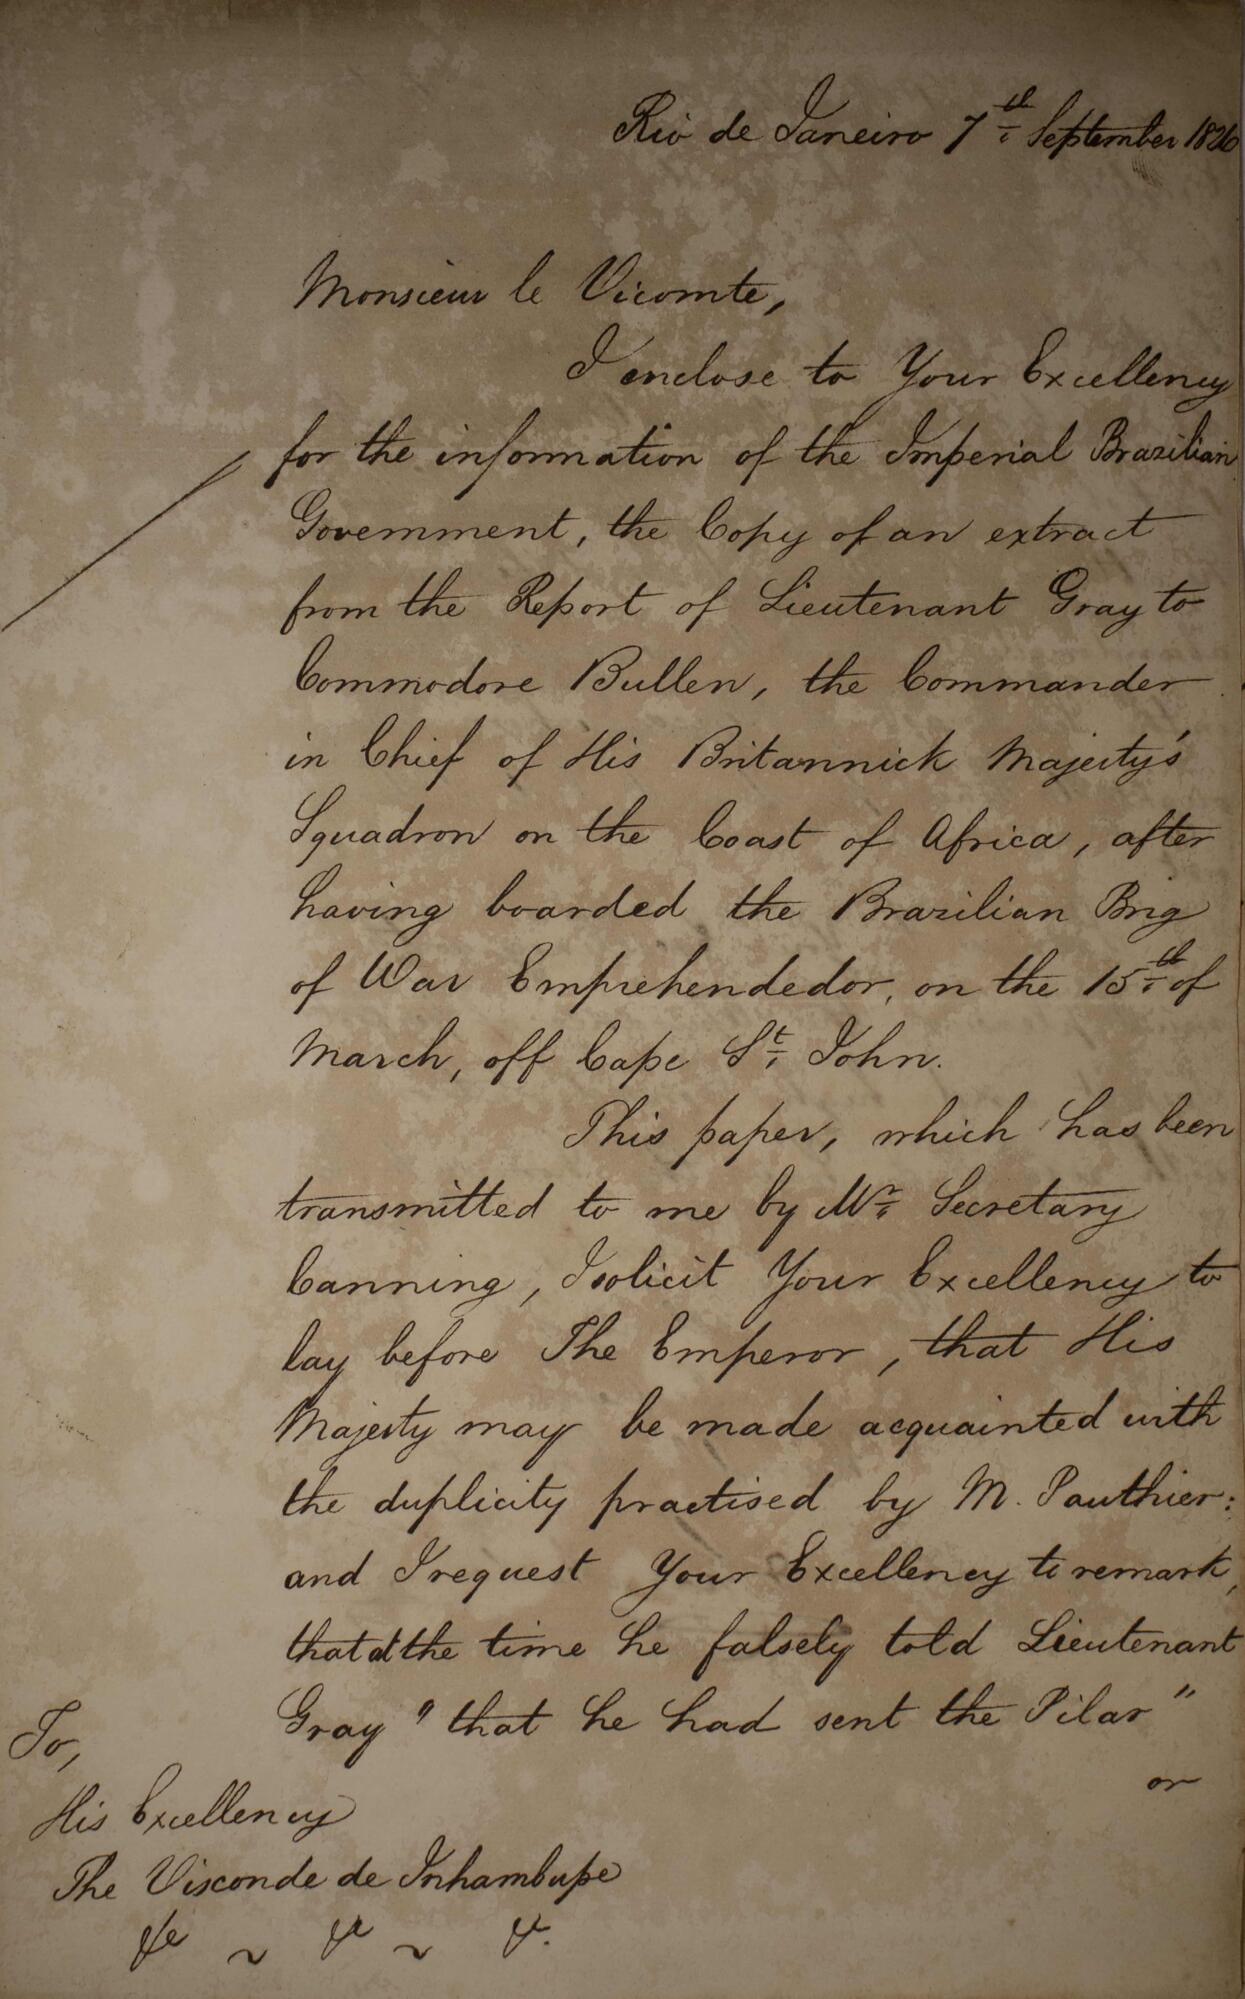 Rio de Janeiro 7th September 1826
Monsieur le Vicomte,
I enclose to Your Excellency
for the information of the Imperial Brazilian
Government, the Copy of an extract
from the Report of Lieutenant Gray to
Commodore Bullen, the Commander
in Chief of His Britannick Majesty's
Squadron on the Coast of Africa, after
having boarded the Brazilian Brig
of War Emprehendedor, on the 15th of
March, off Cape St John.
This paper, which has been
transmitted to me by Mr Secretary
Canning, I solicit Your Excellency to
lay before The Emperor, that His
Majesty may be made acquainted with
the duplicity practised by M. Pauthier:
and I request Your Excellency to remark,
that at the time he falsely told Lieutenant
Gray "that he had sent the Pilar"
or
To,
His Excellency
The Visconde de Inhambupe
&c ~ &c ~ &c.